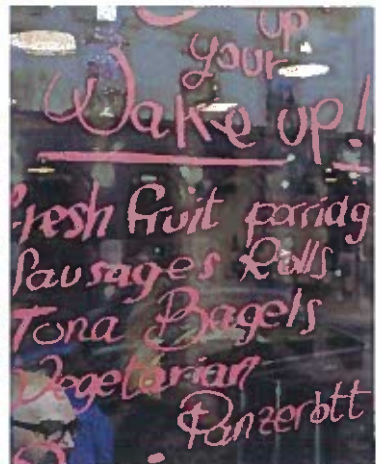 up
your
Wake up!
Fresh Fruit porridg
Sausages Rolls
Tuna Bagels
Vegetarian
Panzerott